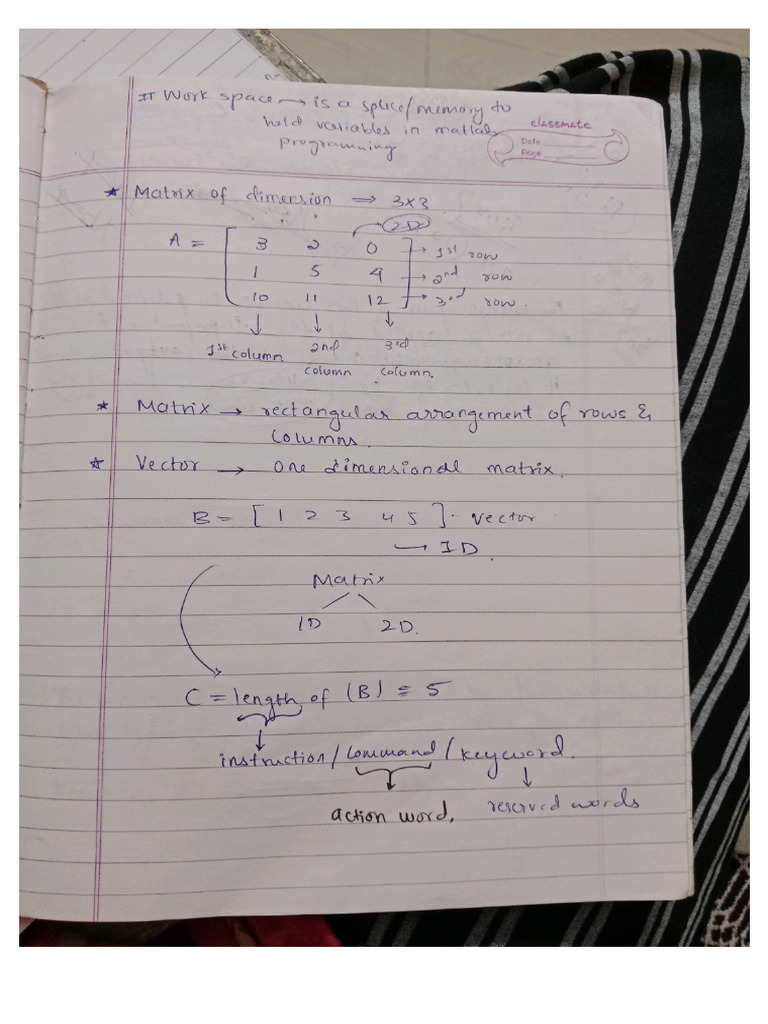 # Work space → is a splice/memory to
hold variables in matlab
programming
classmate
Date
Page
* Matrix of dimension ⇒ 3x3
2D
A = [ 3 2 0 ] → 1st row
1 5 4 → 2nd row
10 11 12 → 3rd row.
↓ ↓ ↓
1st column 2nd column 3rd column.
* Matrix → rectangular arrangement of rows &
columns.
* Vector → one dimensional matrix.
B = [ 1 2 3 4 5 ] - vector
→ 1D.
Matrix
1D 2D.
C = length of (B) = 5
↓
instruction / command / keyword.
↓ ↓
action word. reserved words